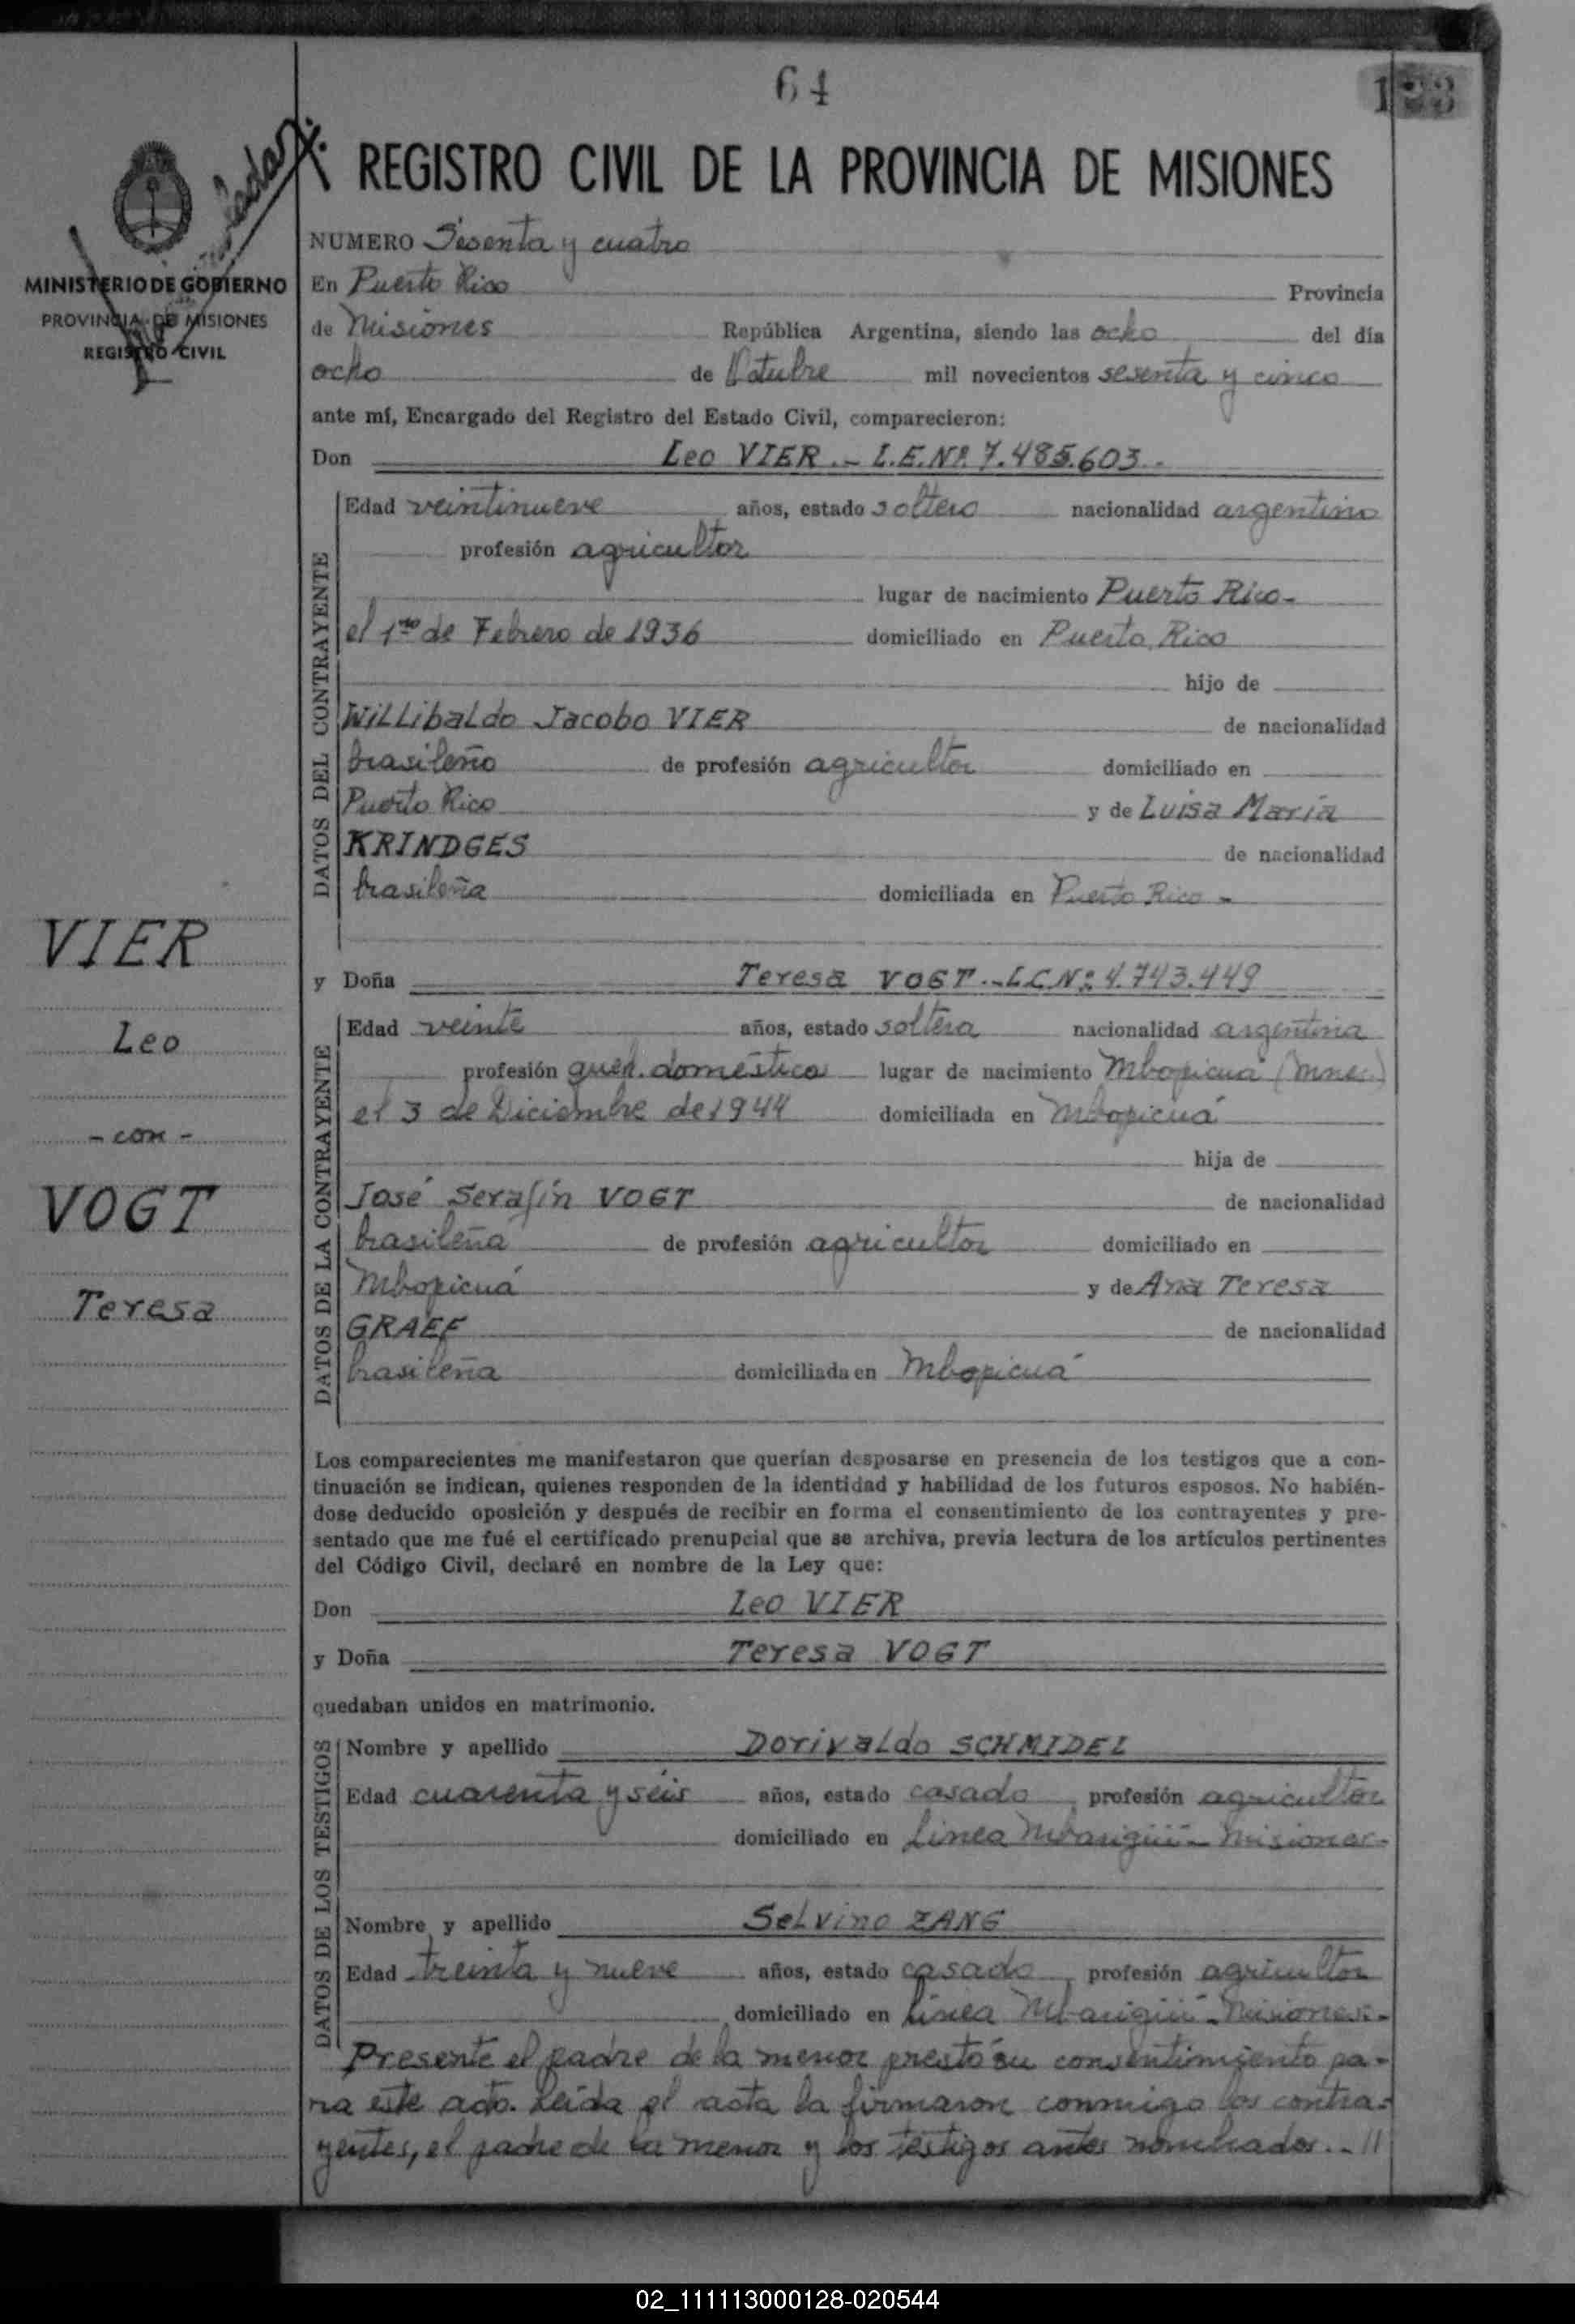 64
123
REGISTRO CIVIL DE LA PROVINCIA DE MISIONES
MINISTERIO DE GOBIERNO
PROVINCIA DE MISIONES
REGISTRO CIVIL
NUMERO Sesenta y cuatro
En Puerto Rico Provincia
de Misiones República Argentina, siendo las ocho del día
ocho de Octubre mil novecientos sesenta y cinco
ante mí, Encargado del Registro del Estado Civil, comparecieron:
Don Leo VIER.- L.E.Nº. 7.485.603.-
DATOS DEL CONTRAYENTE
Edad veintinueve años, estado soltero nacionalidad argentino
profesión agricultor
lugar de nacimiento Puerto Rico-
el 1ro de Febrero de 1936 domiciliado en Puerto Rico
hijo de
Willibaldo Jacobo VIER de nacionalidad
brasileño de profesión agricultor domiciliado en
Puerto Rico y de Luisa María
KRINDGES de nacionalidad
brasileña domiciliada en Puerto Rico -
y Doña Teresa VOGT.-L.C.Nº 4.743.449
DATOS DE LA CONTRAYENTE
Edad veinte años, estado soltera nacionalidad argentina
profesión queh. domésticos lugar de nacimiento Mbopicuá (Mnes.)
el 3 de Diciembre de 1944 domiciliada en Mbopicuá
hija de
José Serafín VOGT de nacionalidad
brasileña de profesión agricultor domiciliado en
Mbopicuá y de Ana Teresa
GRAEF de nacionalidad
brasileña domiciliada en Mbopicuá
VIER
Leo
- con -
VOGT
Teresa
Los comparecientes me manifestaron que querían desposarse en presencia de los testigos que a con-
tinuación se indican, quienes responden de la identidad y habilidad de los futuros esposos. No habién-
dose deducido oposición y después de recibir en forma el consentimiento de los contrayentes y pre-
sentado que me fué el certificado prenupcial que se archiva, previa lectura de los artículos pertinentes
del Código Civil, declaré en nombre de la Ley que:
Don Leo VIER
y Doña Teresa VOGT
quedaban unidos en matrimonio.
DATOS DE LOS TESTIGOS
Nombre y apellido Dorivaldo SCHMIDEL
Edad cuarenta y seis años, estado casado, profesión agricultor
domiciliado en Línea Mbarigüí - Misiones-
Nombre y apellido Selvino ZANG
Edad treinta y nueve años, estado casado, profesión agricultor
domiciliado en Línea Mbarigüí - Misiones.-
Presente el padre de la menor prestó su consentimiento pa-
ra este acto. Leída el acta la firmaron conmigo los contra-
yentes, el padre de la menor y los testigos antes nombrados.-//
02_111113000128-020544